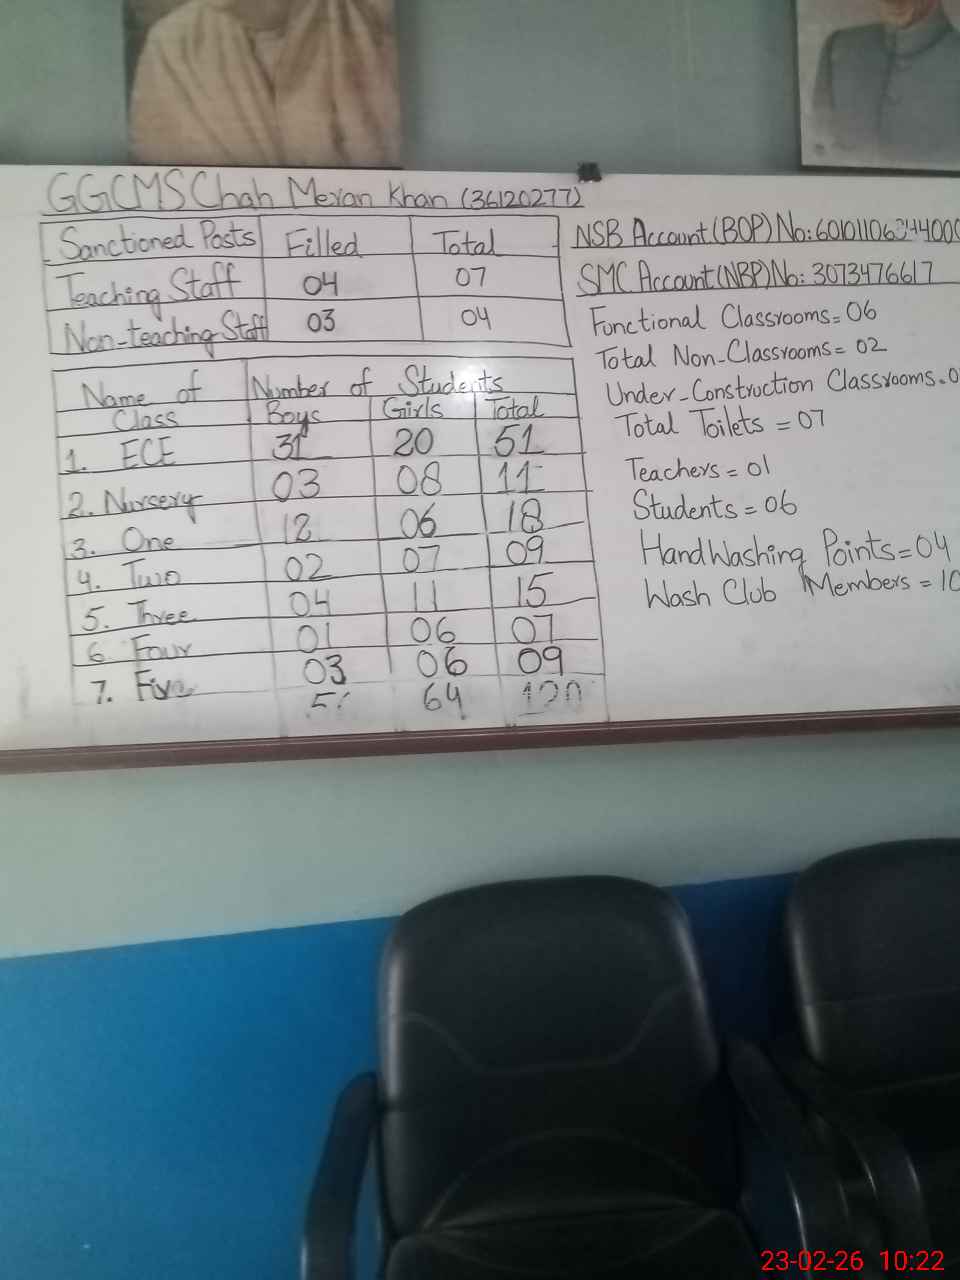 GGCMS Chah Meran Khan (36120277)
Sanctioned Posts Filled Total
Teaching Staff 04 07
Non-teaching Staff 03 04
Name of Class Number of Students
Boys Girls Total
1. ECE 31 20 51
2. Nursery 03 08 11
3. One 12 06 18
4. Two 02 07 09
5. Three 04 11 15
6 Four 01 06 07
7. Five 03 06 09
64 120
NSB Account (BOP) No:
SMC Account (NBP) No: 3073476617
Functional Classrooms = 06
Total Non-Classrooms = 02
Under-Construction Classrooms =
Total Toilets = 07
Teachers = 01
Students = 06
Hand Washing Points = 04
Wash Club Members = 10
23-02-26 10:22